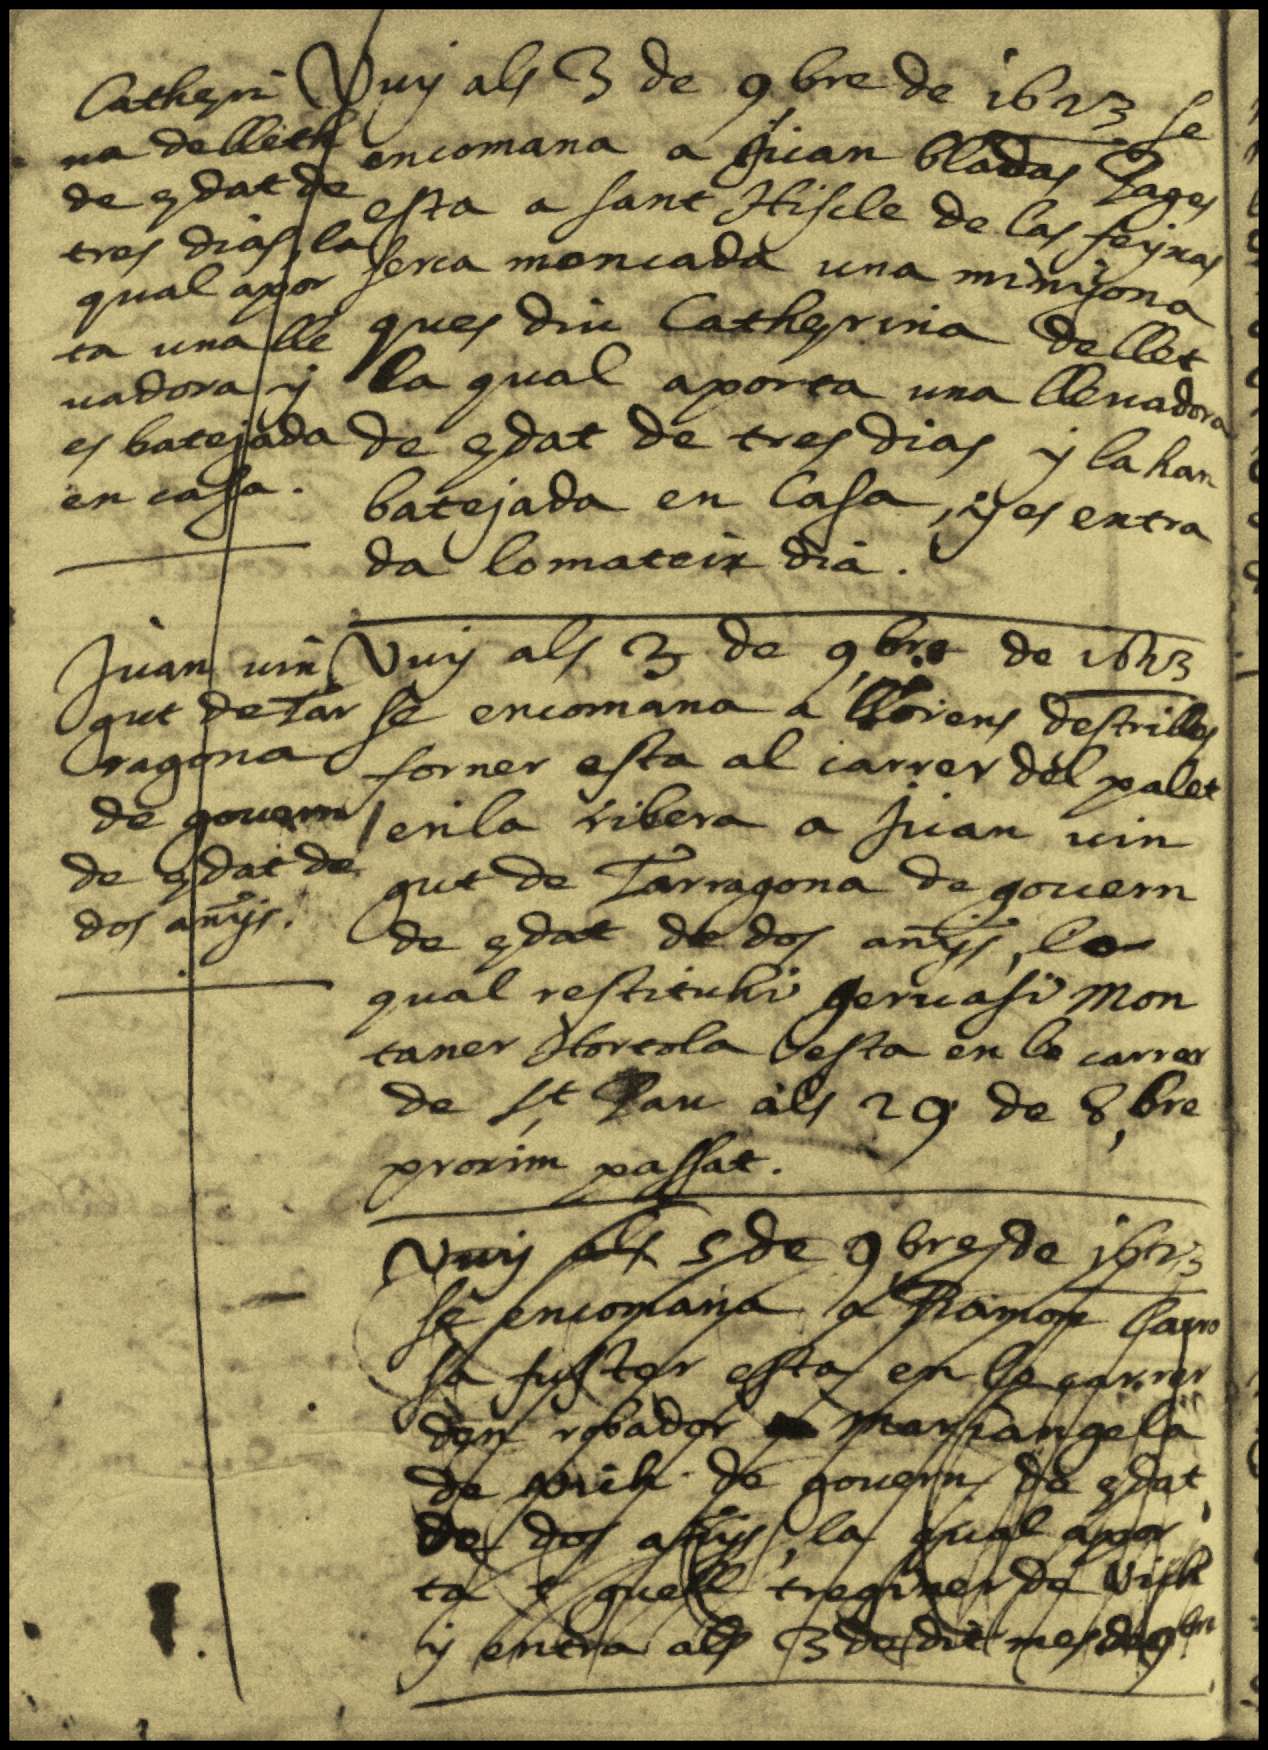 Catheyri
na de lleth
de edat de
tres dias, la
qual apor
ta una lle
vadora y
es batejada
en casa.
Vuy als 3 de 9bre de 1623 se
encomana a Juan bladas Pages
esta a sant Hiscle de las feyxas
serca moncada una minyona
ques diu Catheyrina de llet
la qual aporta una llevadora
de edat de tres dias y la han
batejada en Casa, y es entra
da lo mateix dia.
Juan vin
gut de Tar
ragona
de govern
de edat de
dos anys.
Vuy als 3 de 9bre de 1623
se encomana a llorens destrilles
forner esta al carrer del palet
en la ribera a Juan vin
gut de Tarragona de govern
de edat de dos anys, lo
qual restituhi gervasi Mon
taner Hortola esta en lo carrer
de St Pau als 29 de 8bre
proxim passat.
Vuy als 5 de 9bre de 1623
se encomana a Ramon
fuster esta en lo carrer
den robador Mariangela
de vich de govern de edat
de dos anys, la qual apor
ta traginer de Vich
y entra als 3 de dit mes de 9bre